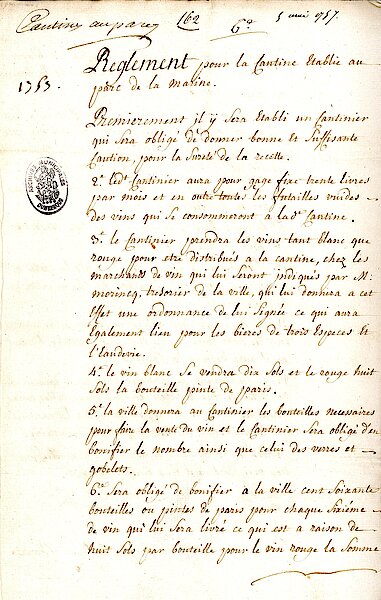 Cantine au parc 162 6e. 5 mai 1757.
Reglement pour la Cantine Etablie au
parc de la marine.
1753.
Premierement il y Sera Etabli un Cantinier
qui Sera obligé de donner bonne et Suffisante
Caution, pour la Sureté de la recette.
2.° Ledt. Cantinier aura pour gage fixe trente livres
par mois et en outre toutes les futailles vuides
des vins qui Se consommeront a lade. Cantine.
3.° le Cantinier prendra les vins tant blanc que
rouge pour etre distribués a la cantine, chez les
marchants de vin qui lui Seront indiqués par M.
morineq, tresorier de la ville, qui lui donnera a cet
Effet une ordonnance de lui Signée ce qui aura
Egalement lieu pour les bieres de trois Especes et
l'Eaudevie.
4.° le vin blanc Se vendra dix Sols et le rouge huit
Sols la bouteille pinte de paris.
5.° la ville donnera au Cantinier les bouteilles necessaires
pour faire la vente du vin et le Cantinier Sera obligé d'en
bonifier le nombre ainsi que celui des verres et
gobelets.
6.° Sera obligé de bonifier a la ville cent Soixante
bouteilles ou pintes de paris pour chaque Sixième
de vin qui lui Sera livré ce qui est a raison de
huit Sols par bouteille pour le vin rouge la Somme